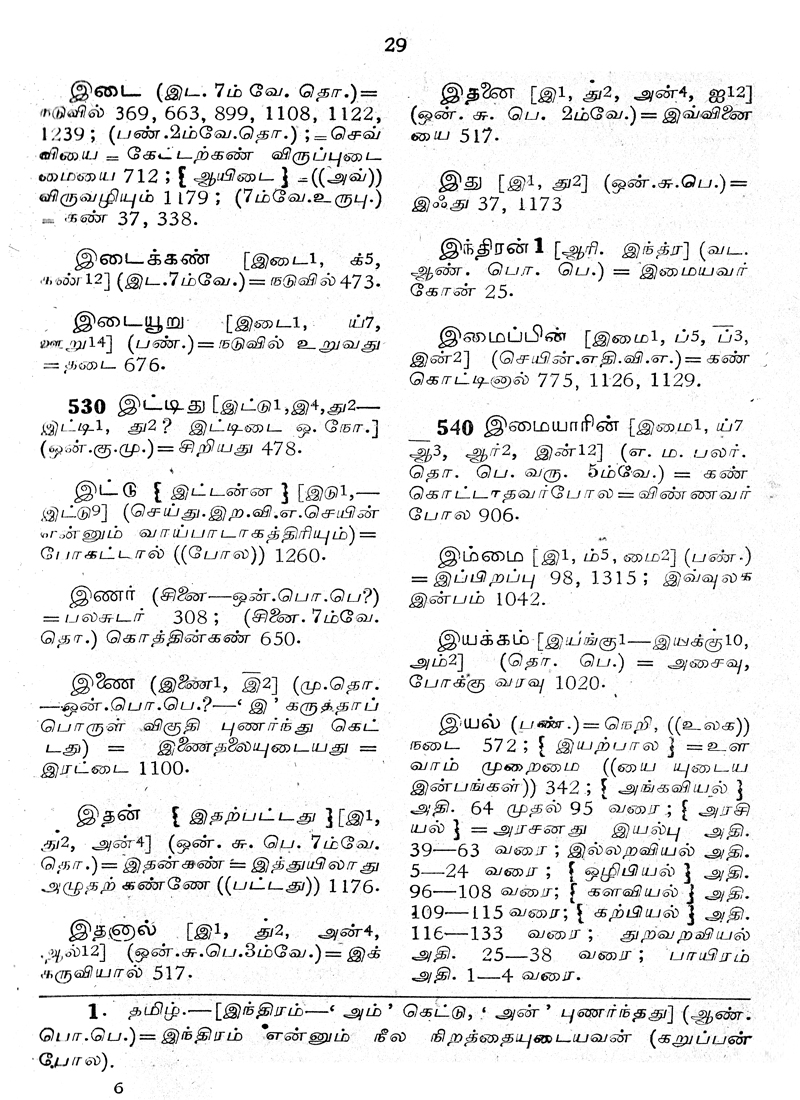 29
இடை (இட. 7ம் வே. தொ.)=
நடுவில் 369, 663, 899, 1108, 1122,
1239; (பண்.2ம்வே.தொ.) ;=செவ்
வியை = கேட்டற்கண் விருப்புடை
மையை 712; { ஆயிடை } =((அவ்))
விருவழியும் 1179; (7ம்வே.உருபு.)
= கண் 37, 338.
இடைக்கண் [இடை1, க்5,
கண்12] (இட.7ம்வே.)=நடுவில் 473.
இடையூறு [இடை1, ய்7,
ஊறு14] (பண்.)=நடுவில் உறுவது
=தடை 676.
530 இட்டிது [இட்டு1,இ4,து2—
இட்டி1, து2? இட்டிடை ஒ. நோ.]
(ஒன்.கு.மு.)=சிறியது 478.
இட்டு { இட்டன்ன } [இடு1,—
இட்டு9] (செய்து.இற.வி.எ.செயின்
என்னும் வாய்பாடாகத்திரியும்)=
போகட்டால் ((போல)) 1260.
இணர் (சினை—ஒன்.பொ.பெ?)
=பலசுடர் 308; (சினை.7ம்வே.
தொ.) கொத்தின்கண் 650.
இணை (இணை1, இ2] (மு.தொ.
—ஒன்.பொ.பெ.?—‘ இ ’ கருத்தாப்
பொருள் விகுதி புணர்ந்து கெட்
டது) = இணைதலையுடையது =
இரட்டை 1100.
இதன் { இதற்பட்டது } [இ1,
து2, அன்4] (ஒன். சு. பெ. 7ம்வே.
தொ.)=இதன்கண் = இத்துயிலாது
அழுதற் கண்ணே ((பட்டது)) 1176.
இதனால் [இ1, து2, அன்4,
ஆல்12] (ஒன்.சு.பெ.3ம்வே.)=இக்
கருவியால் 517.
இதனை [இ1, து2, அன்4, ஐ12]
(ஒன். சு. பெ. 2ம்வே.)=இவ்வினை
யை 517.
இது [இ1, து2] (ஒன்.சு.பெ.)=
இஃது 37, 1173
இந்திரன்1 [ஆரி. இந்த்ர] (வட.
ஆண். பொ. பெ.) = இமையவர்
கோன் 25.
இமைப்பின் [இமை1, ப்5, ப்3,
இன்2] (செயின்.எதி.வி.எ.)=கண்
கொட்டினால் 775, 1126, 1129.
540 இமையாரின் [இமை1, ய்7
ஆ3, ஆர்2, இன்12] (எ. ம. பலர்.
தொ. பெ. வரு. 5ம்வே.) = கண்
கொட்டாதவர்போல=விண்ணவர்
போல 906.
இம்மை [இ1, ம்5, மை2] (பண்.)
=இப்பிறப்பு 98, 1315; இவ்வுலக
இன்பம் 1042.
இயக்கம் [இயங்கு1—இயக்கு10,
அம்2] (தொ. பெ.) = அசைவு,
போக்கு வரவு 1020.
இயல் (பண்.)=நெறி, ((உலக))
நடை 572; { இயற்பால } =உள
வாம் முறைமை ((யை யுடைய
இன்பங்கள்)) 342; { அங்கவியல் }
அதி. 64 முதல் 95 வரை; { அரசி
யல் } =அரசனது இயல்பு அதி.
39—63 வரை; இல்லறவியல் அதி.
5—24 வரை; { ஒழிபியல் } அதி.
96—108 வரை; { களவியல் } அதி.
109—115 வரை; { கற்பியல் } அதி.
116—133 வரை; துறவறவியல்
அதி. 25—38 வரை; பாயிரம்
அதி. 1—4 வரை.
1. தமிழ்.—[இந்திரம்—‘ அம் ’ கெட்டு, ‘ அன் ’ புணர்ந்தது] (ஆண்.
பொ.பெ.)=இந்திரம் என்னும் நீல நிறத்தையுடையவன் (கறுப்பன்
போல).
6